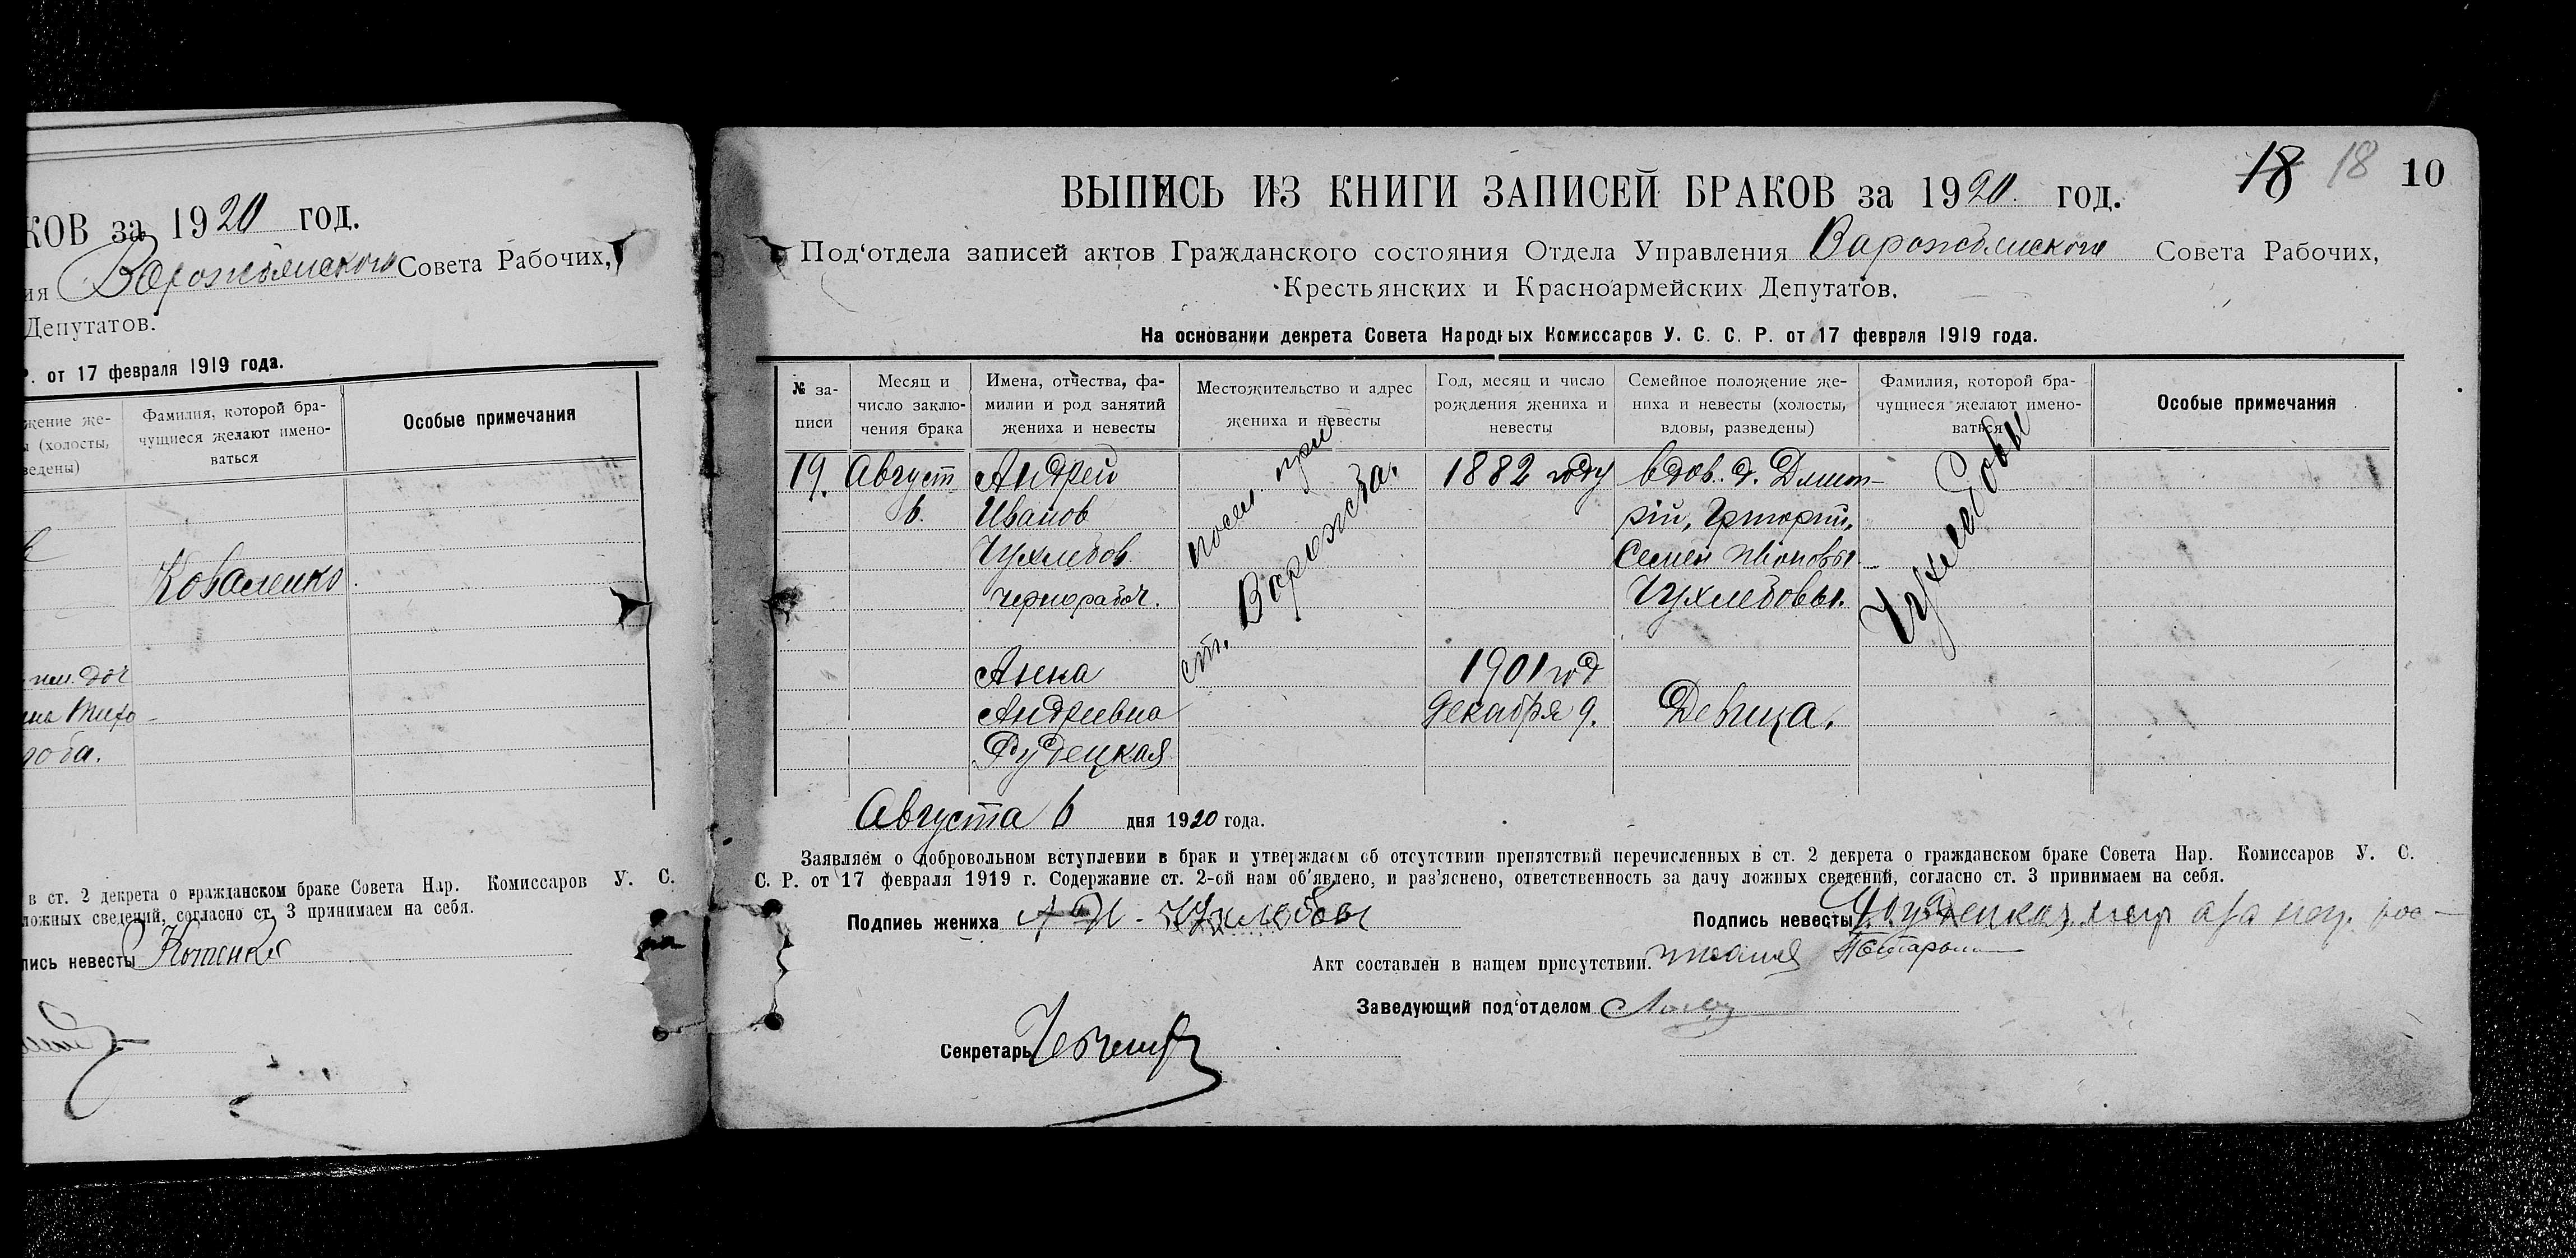 КОВ за 1920 год.
ия Варожбянского Совета Рабочих,
Депутатов.
Р. от 17 февраля 1919 года.
жение же-
ы (холосты,
ведены)
Фамилия, которой бра-
чущиеся желают имено-
ваться
Особые примечания
Коваленко
доч
в ст. 2 декрета о гражданском браке Совета Нар. Комиссаров У. С.
ложных сведений, согласно ст. 3 принимаем на себя.
пись невесты
18 18 10
ВЫПИСЬ ИЗ КНИГИ ЗАПИСЕЙ БРАКОВ за 1920 год.
Под‘отдела записей актов Гражданского состояния Отдела Управления Варожбянского Совета Рабочих,
Крестьянских и Красноармейских Депутатов.
На основании декрета Совета Народных Комиссаров У. С. С. Р. от 17 февраля 1919 года.
№ за-
писи
Месяц и
число заклю-
чения брака
Имена, отчества, фа-
милии и род занятий
жениха и невесты
Местожительство и адрес
жениха и невесты
Год, месяц и число
рождения жениха и
невесты
Семейное положение же-
ниха и невесты (холосты,
вдовы, разведены)
Фамилия, которой бра-
чущиеся желают имено-
ваться
Особые примечания
19.
Август
6.
Андрей
Иванов
Чухлебов
чернораб.
Анна
Андреевна
Рудецкая
посел. при
ст. Варожба.
1882 году
1901 год
декабря 9.
вдов. д. Дмит-
рий, Григорий,
Семен
Чухлебовы.
Девица.
Чухлебовы
Августа 6 дня 1920 года.
Заявляем о добровольном вступлении в брак и утверждаем об отсутствии препятствий перечисленных в ст. 2 декрета о гражданском браке Совета Нар. Комиссаров У. С.
С. Р. от 17 февраля 1919 г. Содержание ст. 2-ой нам об'явлено, и раз'яснено, ответственность за дачу ложных сведений, согласно ст. 3 принимаем на себя.
Подпись жениха А И Чухлебовы
Подпись невесты
Акт составлен в нащем присутствии.
Заведующий под‘отделом
Секретарь